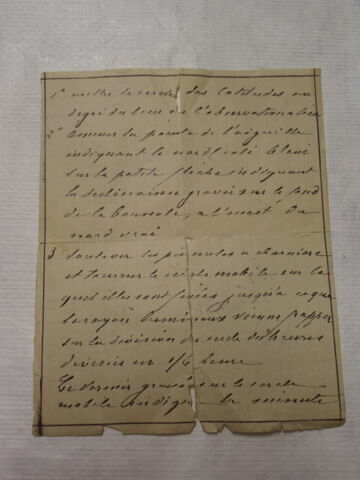 1° mettre le cercle des latitudes au
degré du lieu de l'observation
2° amener la pointe de l'aiguille
indiquant le nord (coté bleu)
sur la petite flèche indiquant
la déclinaison gravée sur le fond
de la boussole, a l'ouest du
nord vrai
3 soulever les pinnules a charnière
et tourner le cercle mobile sur le
quel elles sont fixées jusqu'a ce que
le rayon lumineux vienne frapper
sur la division du cercle des heures
divisées en 1/4 heure
Le vernier gravé sur le cercle
mobile indique la minute